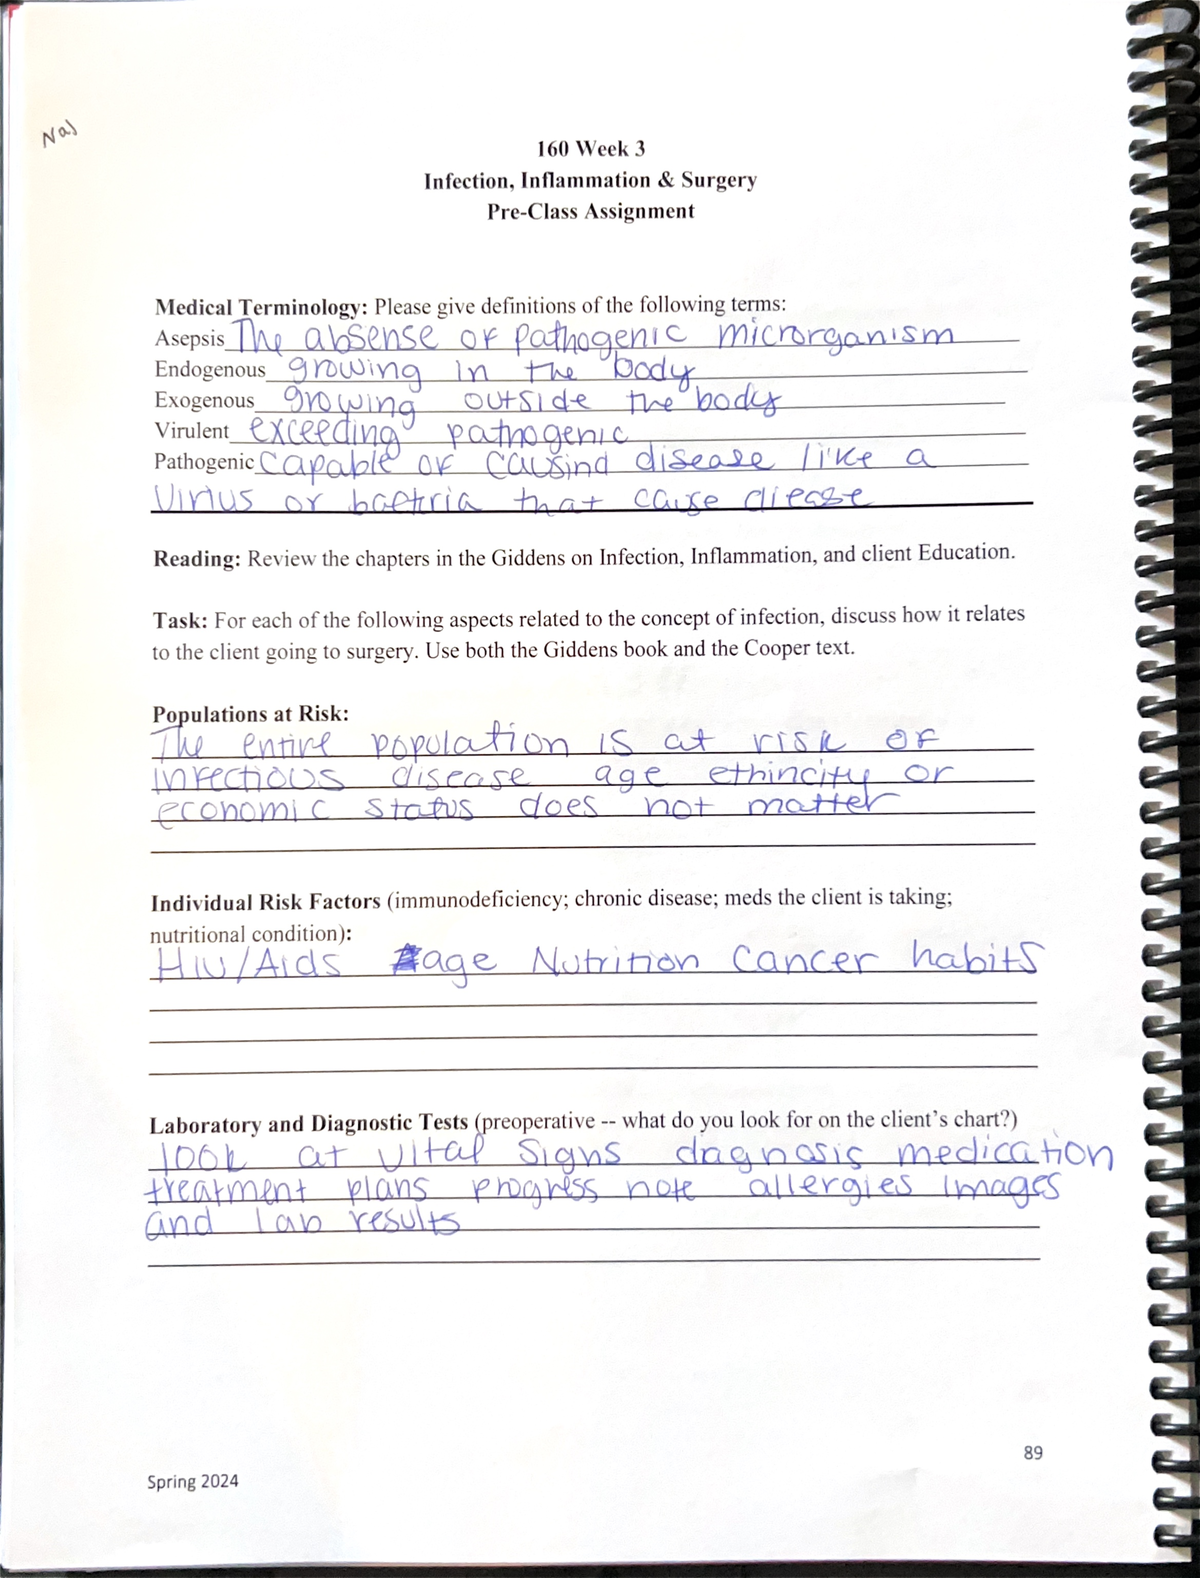 Nas
160 Week 3
Infection, Inflammation & Surgery
Pre-Class Assignment
Medical Terminology: Please give definitions of the following terms:
Asepsis The absense of pathogenic microrganism
Endogenous growing in the body
Exogenous growing outside the body
Virulent exceeding pathogenic
Pathogenic capable of causind disease like a
Virius or bactria that cause diease
Reading: Review the chapters in the Giddens on Infection, Inflammation, and client Education.
Task: For each of the following aspects related to the concept of infection, discuss how it relates
to the client going to surgery. Use both the Giddens book and the Cooper text.
Populations at Risk:
The entire population is at risk of
infectious disease age ethincity or
economic status does not matter
Individual Risk Factors (immunodeficiency; chronic disease; meds the client is taking;
nutritional condition):
HIV/Aids age Nutrition Cancer habits
Laboratory and Diagnostic Tests (preoperative -- what do you look for on the client's chart?)
look at vital signs dagnosis medication
treatment plans progress note allergies images
and lab results
89
Spring 2024